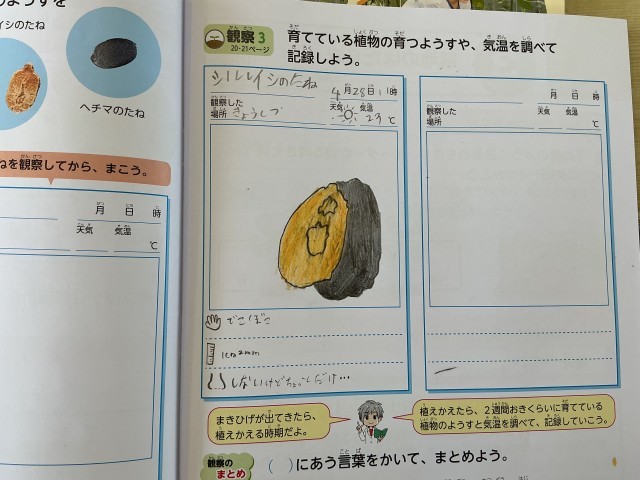 ようすを
イシのたね
ヘチマのたね
ねを観察してから、まこう。
月 日 時
天気 気温
℃
観察3
20・21ページ
育てている植物の育つようすや、気温を調べて
記録しよう。
ツルレイシのたね
4月28日11時
観察した
場所 きょうしつ
天気 気温
23℃
でこぼこ
1cm2mm
しないけどちょっとだけ…
月 日 時
観察した
場所
天気 気温
℃
まきひげが出てきたら、
植えかえる時期だよ。
植えかえたら、2週間おきくらいに育てている
植物のようすと気温を調べて、記録していこう。
観察の
まとめ
( )にあう言葉をかいて、まとめよう。